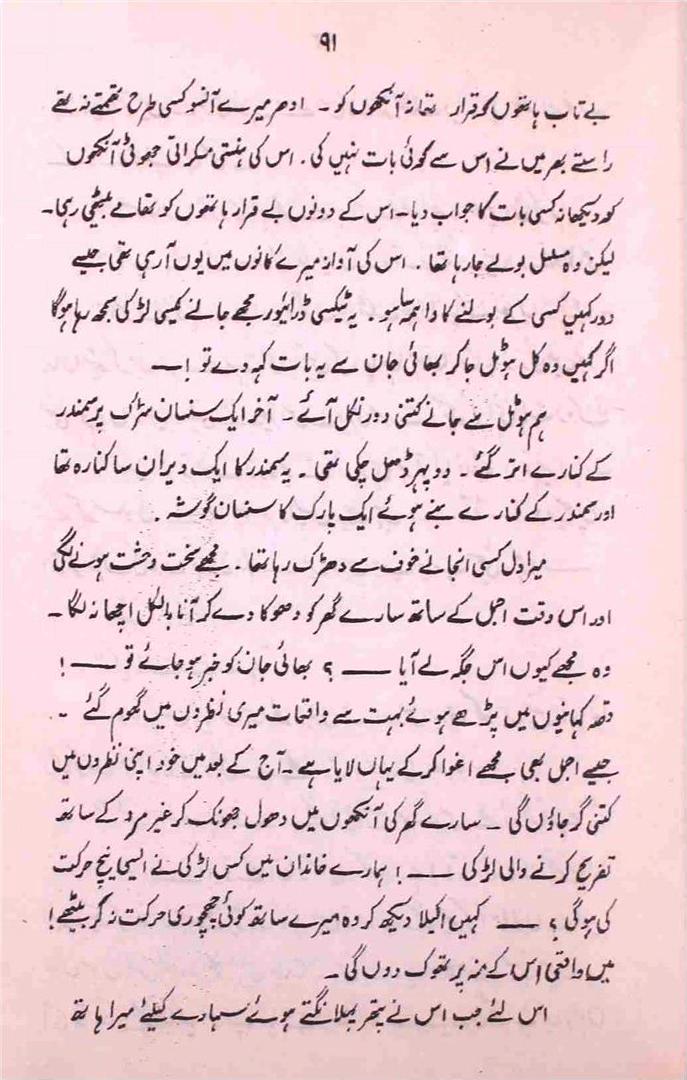 ۹۱
بے تاب ہاتھوں کو قرار تھا نہ آنکھوں کو ۔ ادھر میرے آنسو کسی طرح تھمتے نہ تھے
راستے بھر میں نے اس سے کوئی بات نہیں کی ۔ اس کی ہنستی مسکراتی جھوٹی آنکھوں
کو دیکھا نہ کسی بات کا جواب دیا ۔ اس کے دونوں بے قرار ہاتھوں کو تھامے بیٹھی رہی ۔
لیکن وہ مسلسل بولے جا رہا تھا ۔ اس کی آواز میرے کانوں میں یوں آ رہی تھی جیسے
دور کہیں کسی کے بولنے کا واہمہ سا ہو ۔ یہ ٹیکسی ڈرائیور مجھے جانے کیسی لڑکی سمجھ رہا ہوگا
اگر کہیں وہ کل ہوٹل جا کر بھائی جان سے یہ بات کہہ دے تو ! ——
ہم ہوٹل سے جانے کتنی دور نکل آئے ۔ آخر ایک سنسان سڑک پر سمندر
کے کنارے اتر گئے ۔ دوپہر ڈھل چکی تھی ۔ یہ سمندر کا ایک ویران سا کنارہ تھا
اور سمندر کے کنارے بنے ہوئے ایک پارک کا سنسان گوشہ ۔
میرا دل کسی انجانے خوف سے دھڑک رہا تھا ۔ مجھے سخت وحشت ہونے لگی
اور اس وقت اجمل کے ساتھ سارے گھر کو دھوکا دے کر آنا بالکل اچھا نہ لگا ۔
وہ مجھے کیوں اس جگہ لے آیا —— ؟ بھائی جان کو خبر ہو جائے تو —— !
قصہ کہانیوں میں پڑھے ہوئے بہت سے واقعات میری نظروں میں گھوم گئے ۔
جیسے اجمل بھی مجھے اغوا کر کے یہاں لایا ہے ۔ آج کے بعد میں خود اپنی نظروں میں
کتنی گر جاؤں گی ۔ سارے گھر کی آنکھوں میں دھول جھونک کر غیر مرد کے ساتھ
تفریح کرنے والی لڑکی —— ! ہمارے خاندان میں کس لڑکی نے ایسی نیچ حرکت
کی ہو گی ؟ —— کہیں اکیلا دیکھ کر وہ میرے ساتھ کوئی چھچوری حرکت نہ کر بیٹھے !
میں واقعی اس کے منہ پر تھوک دوں گی ۔
اس لئے جب اس نے پتھر پھلانگتے ہوئے سہارے کیلئے میرا ہاتھ